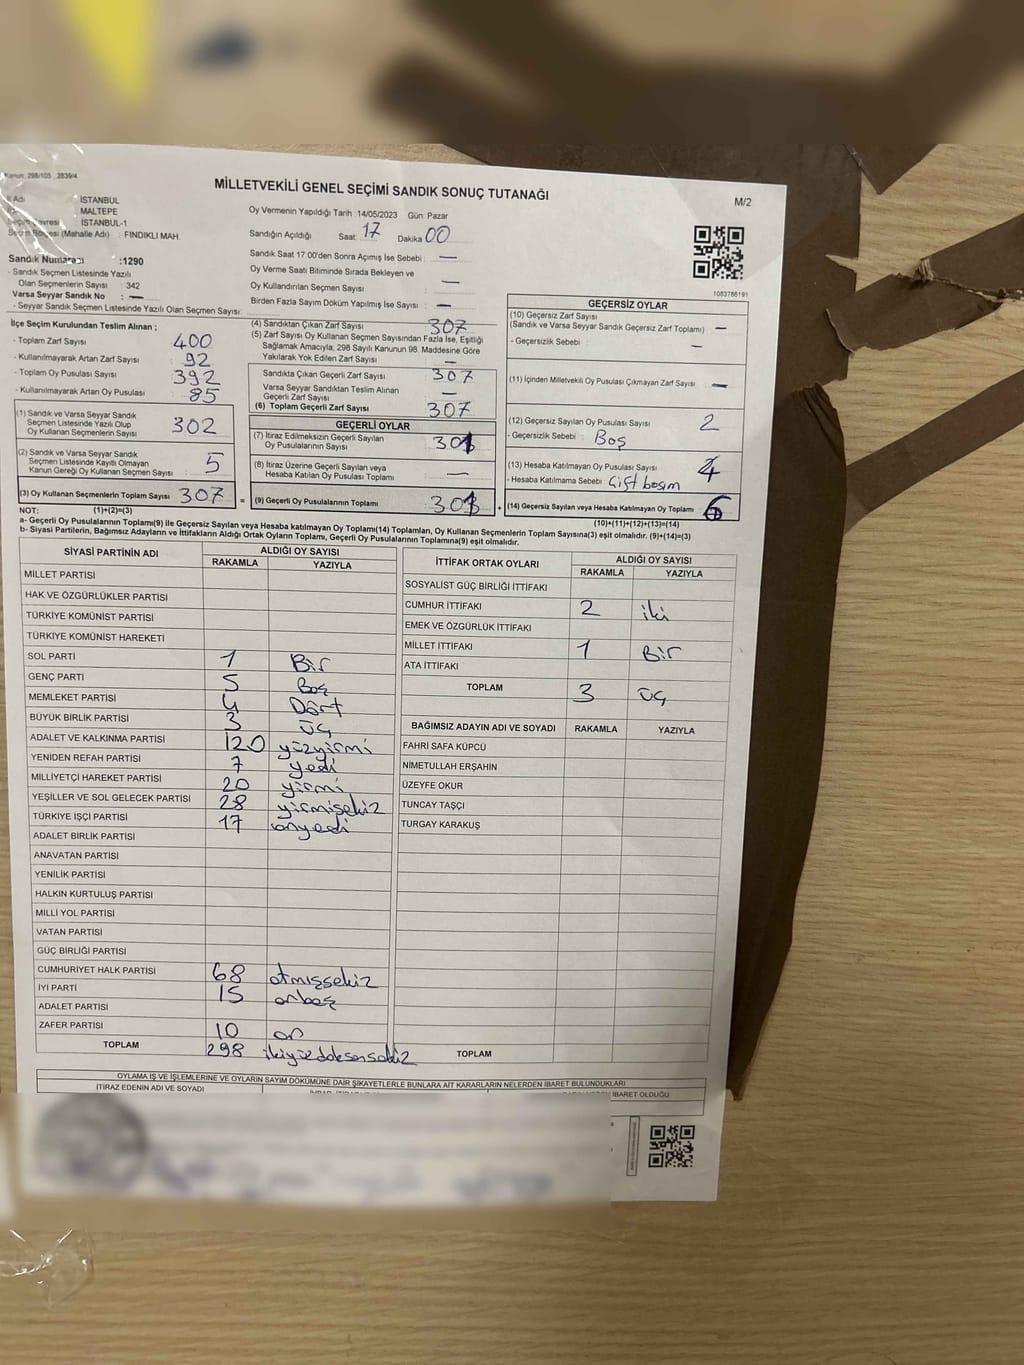 Kanun: 298/105 , 2839/4
MİLLETVEKİLİ GENEL SEÇİMİ SANDIK SONUÇ TUTANAĞI
M/2
İl Adı : İSTANBUL
: MALTEPE
Seçim Çevresi : İSTANBUL-1
Seçim Bölgesi (Mahalle Adı) : FINDIKLI MAH.
Sandık Numarası :1290
- Sandık Seçmen Listesinde Yazılı
Olan Seçmenlerin Sayısı : 342
Varsa Seyyar Sandık No : —
- Seyyar Sandık Seçmen Listesinde Yazılı Olan Seçmen Sayısı:
Oy Vermenin Yapıldığı Tarih :14/05/2023 Gün: Pazar
Sandığın Açıldığı Saat: 17 Dakika 00
Sandık Saat 17:00'den Sonra Açımış İse Sebebi : —
Oy Verme Saati Bitiminde Sırada Bekleyen ve
Oy Kullandırılan Seçmen Sayısı : —
Birden Fazla Sayım Döküm Yapılmış İse Sayısı : —
1083786191
İlçe Seçim Kurulundan Teslim Alınan ;
- Toplam Zarf Sayısı 400
- Kullanılmayarak Artan Zarf Sayısı 92
- Toplam Oy Pusulası Sayısı 392
- Kullanılmayarak Artan Oy Pusulası 85
(1) Sandık ve Varsa Seyyar Sandık
Seçmen Listesinde Yazılı Olup
Oy Kullanan Seçmenlerin Sayısı 302
(2) Sandık ve Varsa Seyyar Sandık
Seçmen Listesinde Kayıtlı Olmayan
Kanun Gereği Oy Kullanan Seçmen Sayısı : 5
(3) Oy Kullanan Seçmenlerin Toplam Sayısı 307
(4) Sandıktan Çıkan Zarf Sayısı : 307
(5) Zarf Sayısı Oy Kullanan Seçmen Sayısından Fazla İse, Eşitliği
Sağlamak Amacıyla; 298 Sayılı Kanunun 98. Maddesine Göre
Yakılarak Yok Edilen Zarf Sayısı : —
Sandıkta Çıkan Geçerli Zarf Sayısı : 307
Varsa Seyyar Sandıktan Teslim Alınan
Geçerli Zarf Sayısı : —
(6) Toplam Geçerli Zarf Sayısı : 307
GEÇERLİ OYLAR
(7) İtiraz Edilmeksizin Geçerli Sayılan
Oy Pusulalarının Sayısı : 301
(8) İtiraz Üzerine Geçerli Sayılan veya
Hesaba Katılan Oy Pusulası Toplamı : —
= (9) Geçerli Oy Pusulalarının Toplamı : 301 +
GEÇERSİZ OYLAR
(10) Geçersiz Zarf Sayısı
(Sandık ve Varsa Seyyar Sandık Geçersiz Zarf Toplamı) : —
- Geçersizlik Sebebi : —
(11) İçinden Milletvekili Oy Pusulası Çıkmayan Zarf Sayısı : —
(12) Geçersiz Sayılan Oy Pusulası Sayısı : 2
- Geçersizlik Sebebi : Boş
(13) Hesaba Katılmayan Oy Pusulası Sayısı : 4
- Hesaba Katılmama Sebebi : Çift basım
(14) Geçersiz Sayılan veya Hesaba Katılmayan Oy Toplamı : 6
NOT: (1)+(2)=(3)
(10)+(11)+(12)+(13)=(14)
a- Geçerli Oy Pusulalarının Toplamı(9) ile Geçersiz Sayılan veya Hesaba katılmayan Oy Toplamı(14) Toplamları, Oy Kullanan Seçmenlerin Toplam Sayısına(3) eşit olmalıdır. (9)+(14)=(3)
b- Siyasi Partilerin, Bağımsız Adayların ve İttifakların Aldığı Ortak Oyların Toplamı, Geçerli Oy Pusulalarının Toplamına(9) eşit olmalıdır.
SİYASİ PARTİNİN ADI ALDIĞI OY SAYISI
RAKAMLA YAZIYLA
MİLLET PARTİSİ
HAK VE ÖZGÜRLÜKLER PARTİSİ
TÜRKİYE KOMÜNİST PARTİSİ
TÜRKİYE KOMÜNİST HAREKETİ
SOL PARTİ 1 Bir
GENÇ PARTİ 5 Beş
MEMLEKET PARTİSİ 4 Dört
BÜYÜK BİRLİK PARTİSİ 3 Üç
ADALET VE KALKINMA PARTİSİ 120 yüzyirmi
YENİDEN REFAH PARTİSİ 7 yedi
MİLLİYETÇİ HAREKET PARTİSİ 20 yirmi
YEŞİLLER VE SOL GELECEK PARTİSİ 28 yirmisekiz
TÜRKİYE İŞÇİ PARTİSİ 17 onyedi
ADALET BİRLİK PARTİSİ
ANAVATAN PARTİSİ
YENİLİK PARTİSİ
HALKIN KURTULUŞ PARTİSİ
MİLLİ YOL PARTİSİ
VATAN PARTİSİ
GÜÇ BİRLİĞİ PARTİSİ
CUMHURİYET HALK PARTİSİ 68 atmışsekiz
İYİ PARTİ 15 onbeş
ADALET PARTİSİ
ZAFER PARTİSİ 10 on
TOPLAM 298 ikiyüzdoksansekiz
İTTİFAK ORTAK OYLARI ALDIĞI OY SAYISI
RAKAMLA YAZIYLA
SOSYALİST GÜÇ BİRLİĞİ İTTİFAKI
CUMHUR İTTİFAKI 2 iki
EMEK VE ÖZGÜRLÜK İTTİFAKI
MİLLET İTTİFAKI 1 Bir
ATA İTTİFAKI
TOPLAM 3 Üç
BAĞIMSIZ ADAYIN ADI VE SOYADI RAKAMLA YAZIYLA
FAHRİ SAFA KÜPCÜ
NİMETULLAH ERŞAHİN
ÜZEYFE OKUR
TUNCAY TAŞÇI
TURGAY KARAKUŞ
TOPLAM
OYLAMA İŞ VE İŞLEMLERİNE VE OYLARIN SAYIM DÖKÜMÜNE DAİR ŞİKAYETLERLE BUNLARA AİT KARARLARIN NELERDEN İBARET BULUNDUKLARI
İTİRAZ EDENİN ADI VE SOYADI
İBARET OLDUĞU